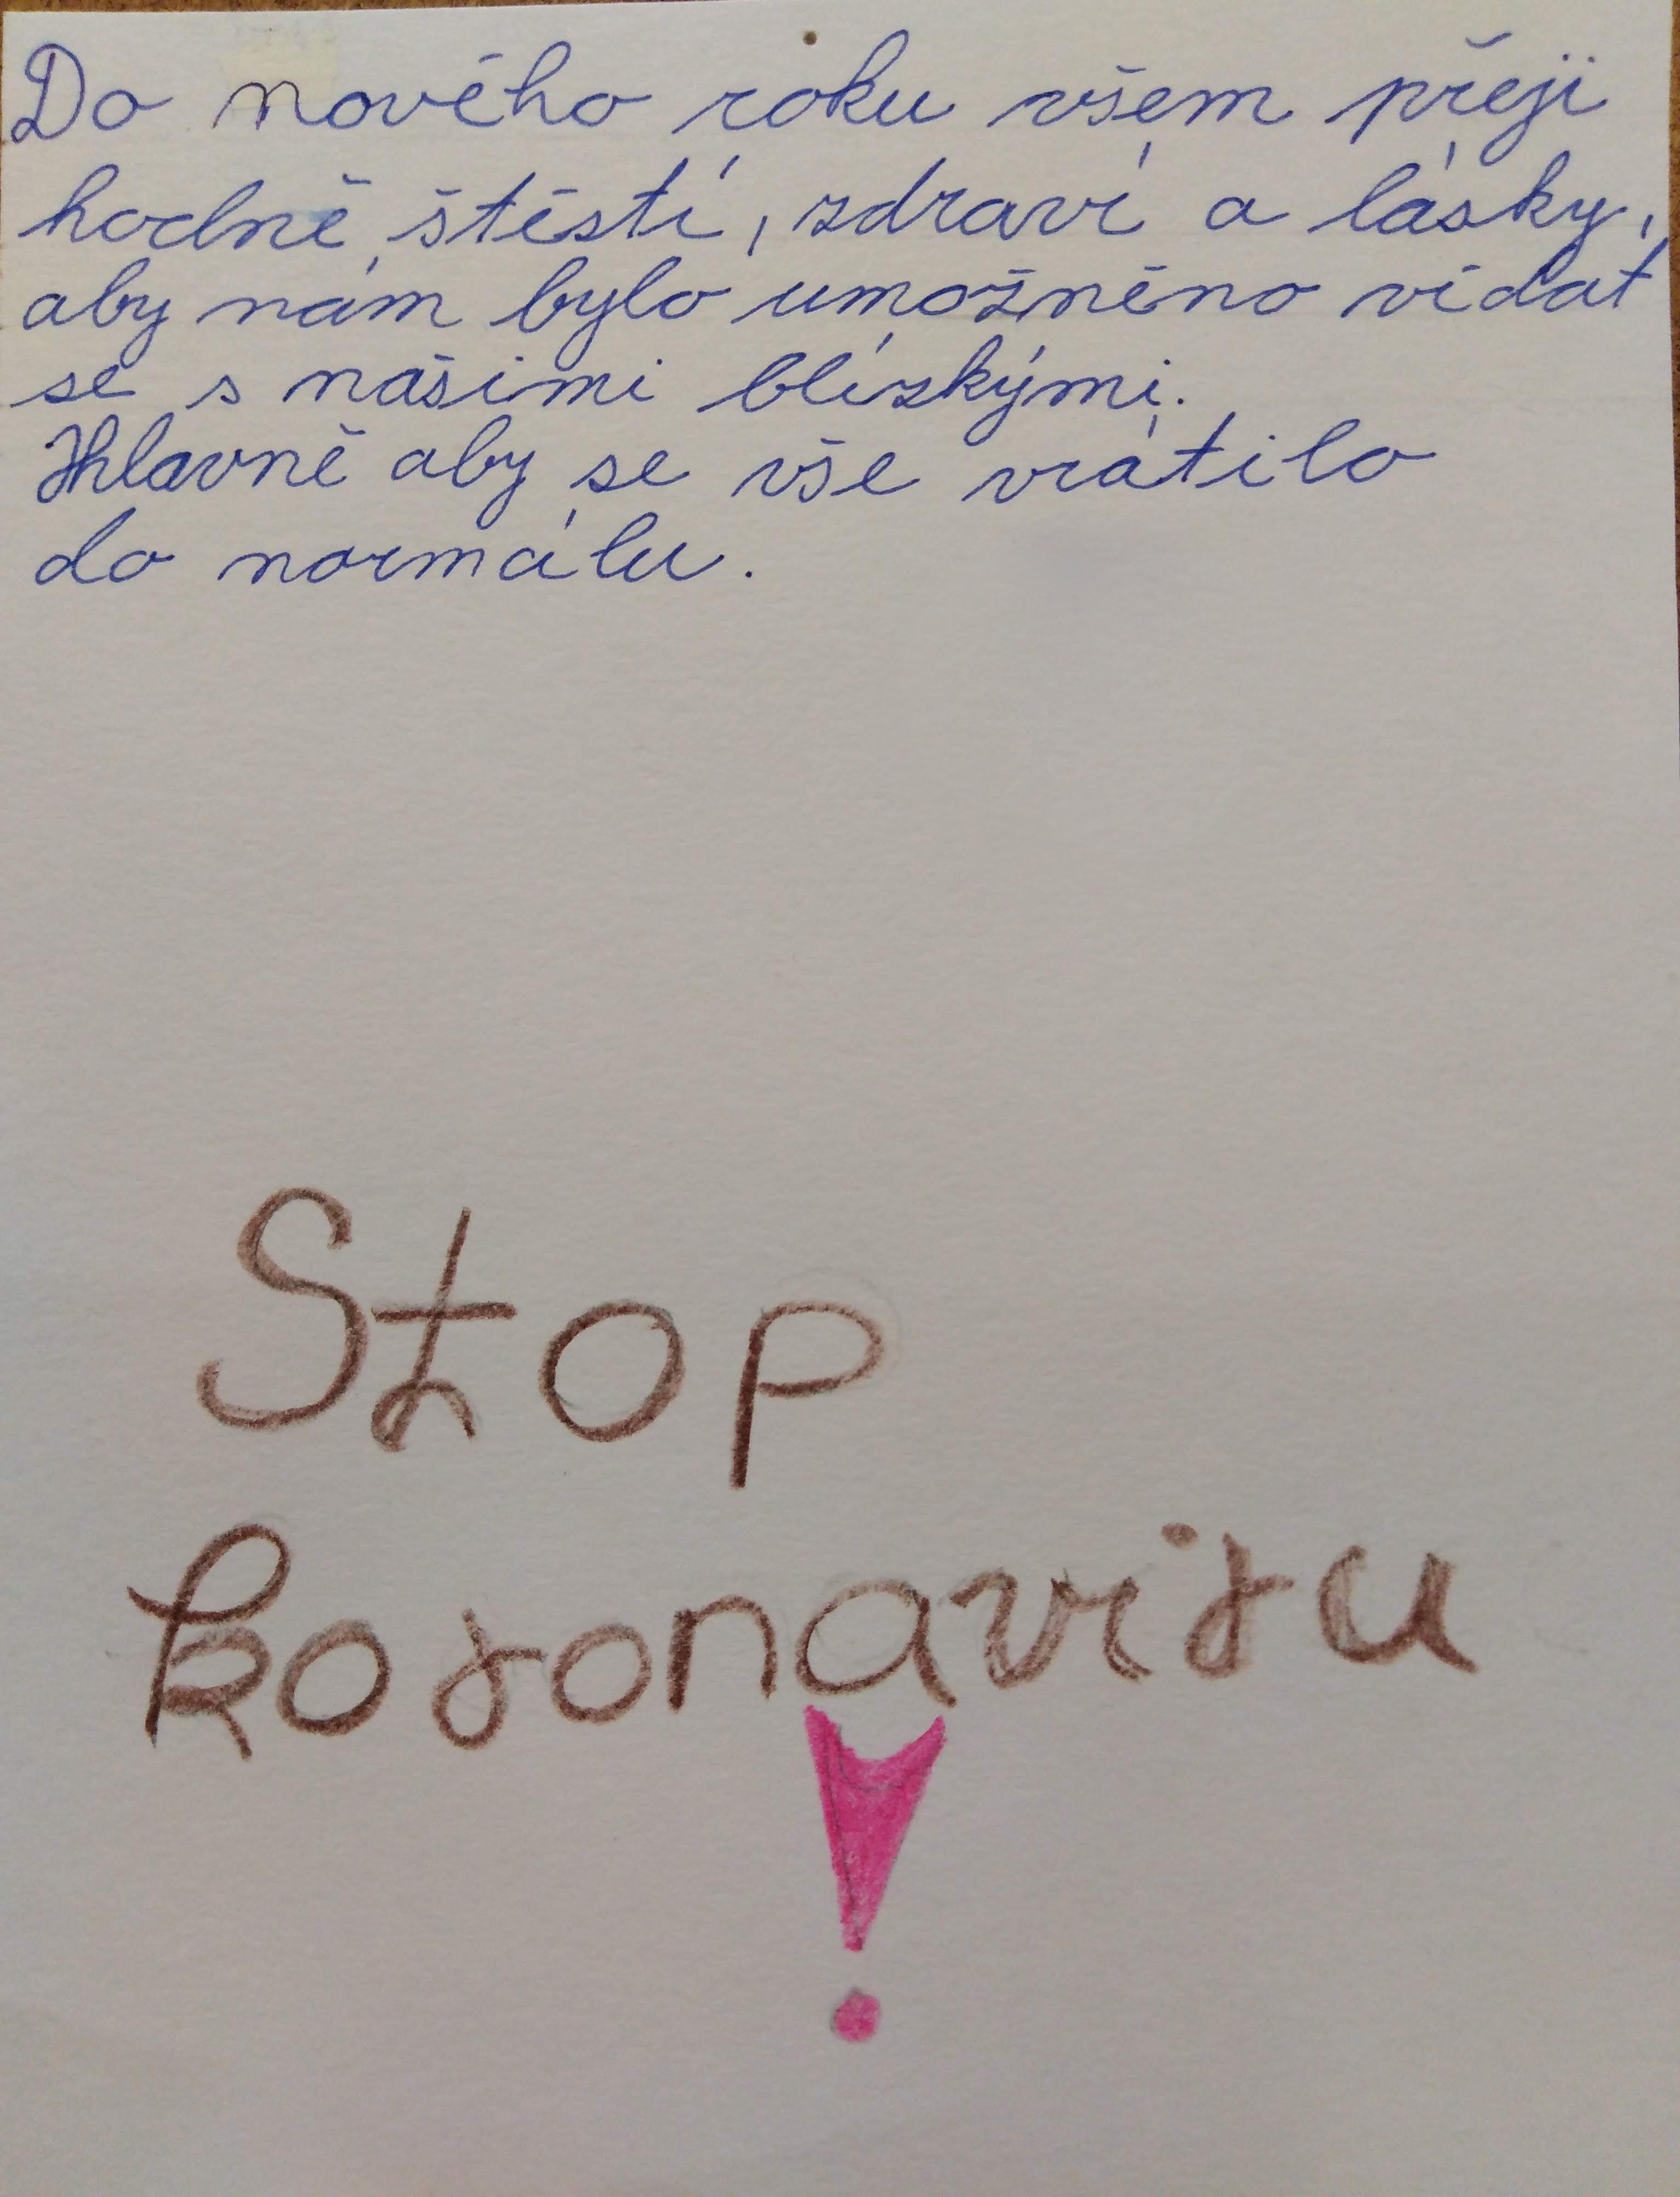 Do nového roku všem přeji
hodně štěstí, zdraví a lásky,
aby nám bylo umožněno vídat
se s našimi blízkými.
Hlavně aby se vše vrátilo
do normálu.
Stop
koronaviru
!